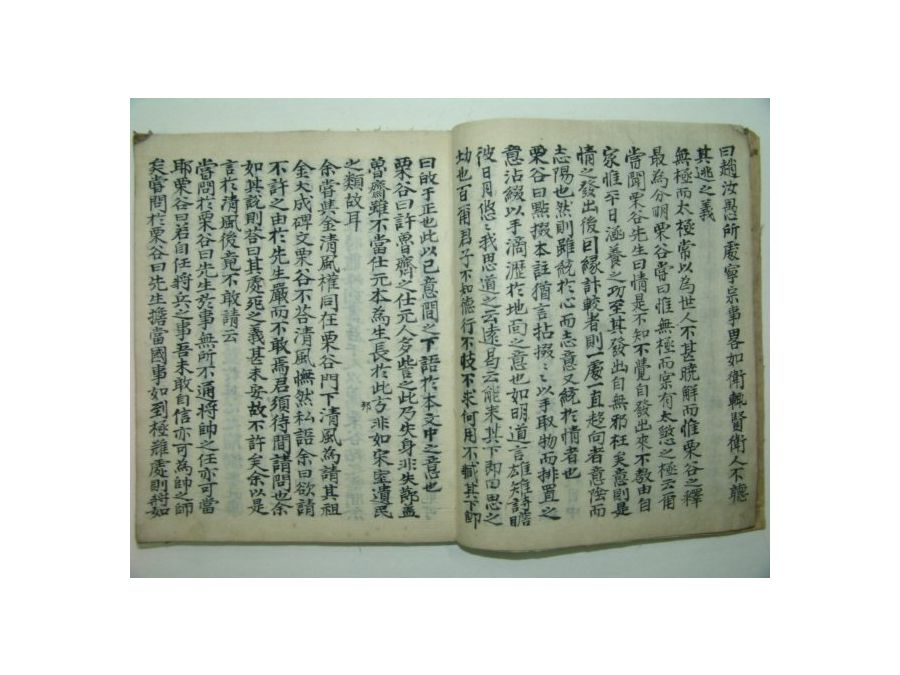 曰趙汝愚所處寧宗事畧如衛輒賢衛人不聽
其逃之義
無極而太極常以為世人不甚曉解而惟栗谷之釋
最為分明栗谷嘗曰惟無極而宗有太慇之極云爾
嘗聞栗谷先生曰情是不知不覺自發出來不教由自
家惟平日涵養之功至其發出自無邪枉矣意則是
情之發出後囙緣計較者則一處一直趍向者意陰而
志陽也然則雖統於心而志意又統於情者也
栗谷曰點掇本註猶言拈掇〻以手取物而排置之
意沾綴以手滴瀝於地面之意也如明道言雄雉詩瞻
彼日月悠〻我思道之云遠曷云能來其下即曰思之
切也百爾君子不知德行不忮不求何用不臧其下即
曰故于正也此以己意間之下語於本文中之意也
栗谷曰許魯齊之仕元人多訾之此乃失身非失莭盖
魯齋雖不當仕元本為生長於此方非如宋室遺民
之類故耳
余嘗與金清風權同在栗谷門下清風為請其祖
金大成碑文栗谷不答清風憮然私語余曰欲請
不許之由於先生嚴而不敢焉君須待間請問也余
如其說則答曰其處死之義甚未安故不許矣余以是
言於清風後竟不敢請云
當問於栗谷曰先生於事無所不通將帥之任亦可當
耶栗谷曰若自任將兵之事吾未敢自信亦可為帥之師
矣嘗問於栗谷曰先生擔當國事如到極難處則將如